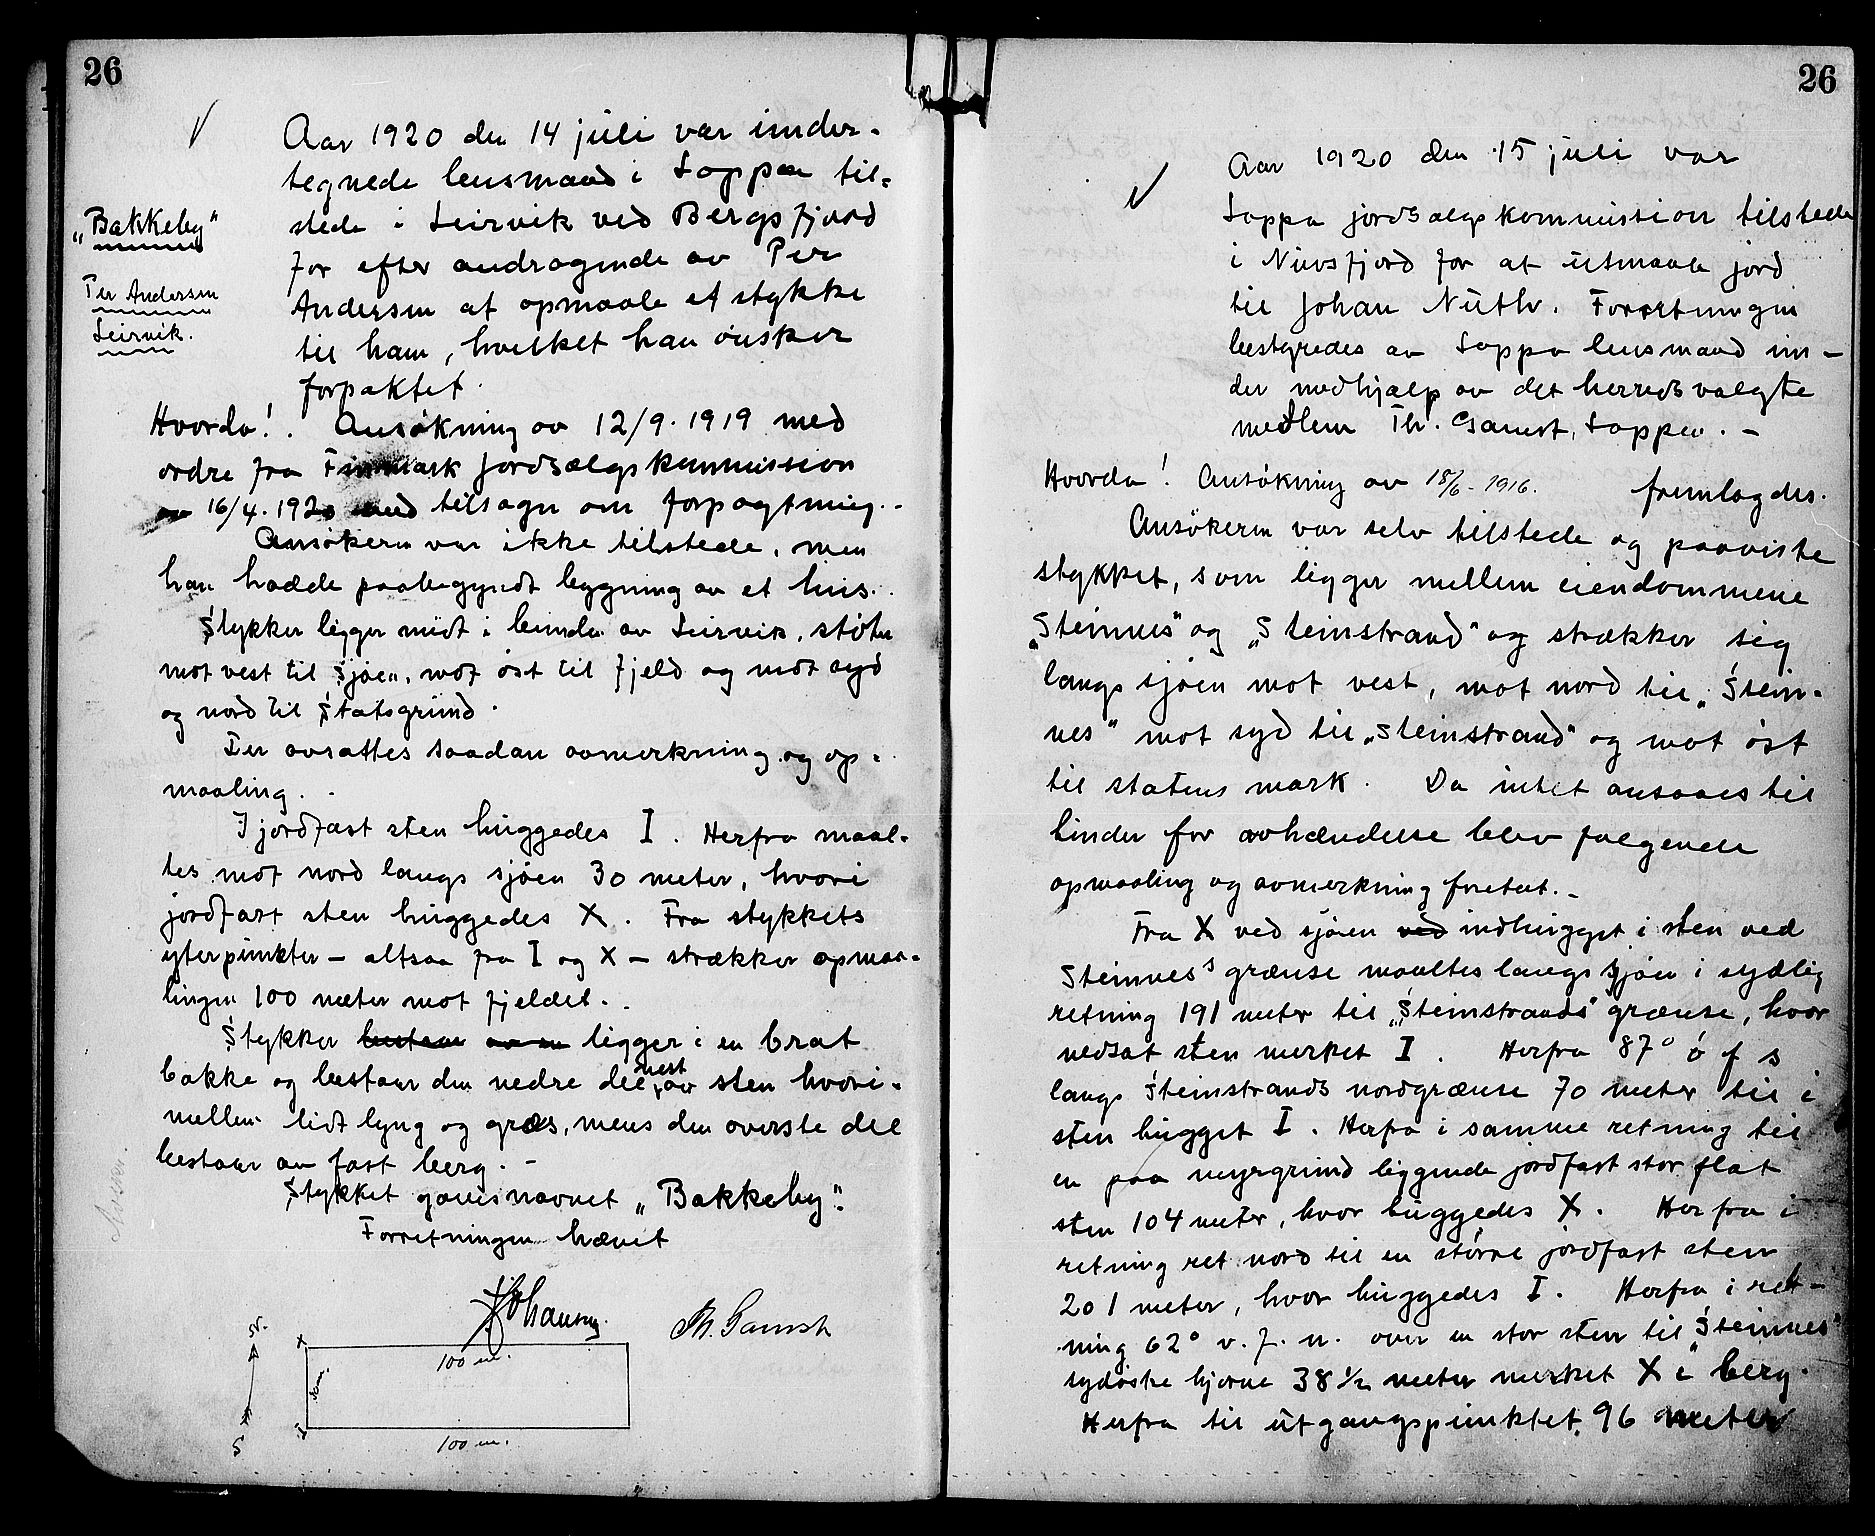 26
✓
Aar 1920 den 14 juli var under-
tegnede lensmand i Loppa til-
stede i Leirvik ved Bergsfjord
for efter andragende av Per
Andersen at opmaale et stykke
til ham, hvilket han önsker
forpaktet.
"Bakkeby"
Per Andersen
Leirvik.
Hvorda! Ansökning av 12/9. 1919 med
ordre fra Finmark jordsalgskommission
av 16/4. 1920 med tilsagn om forpagtning.-
Ansökeren var ikke tilstede, men
han hadde paabegyndt bygning av et hus.
Stykket ligger midt i bunden av Leirvik, stöter
mot vest til sjöen, mot öst til fjeld og mot syd
og nord til Statsgrund.
Der avsattes saadan avmerkning og op-
maaling.
I jordfast sten huggedes I. Herfra maal-
tes mot nord langs sjöen 30 meter, hvor i
jordfast sten huggedes X. Fra stykkets
yterpunkter - altsaa fra I og X - strækker opmaa-
lingen 100 meter mot fjeldet.
Stykket bestaar av en ligger i en brat
bakke og bestaar den nedre del mest av sten hvori-
mellem lidt lyng og græs, mens den överste del
bestaar av fast berg. -
Stykket gaves navnet "Bakkeby".
Forretningen hævet
Johansen.
Th. Garnst
N.
S
X
I
30 m.
100 m.
100 m.
26
✓
Aar 1920 den 15 juli var
Loppa jordsalgskommission tilstede
i Nuvsfjord for at utmaale jord
til Johan Nuth. Forretningen
bestyredes av Loppa lensmand un-
der medhjælp av det herredsvalgte
medlem Th. Garnst, Loppa. -
Hvorda! Ansökning av 18/6 - 1916. fremlagdes.
Ansökeren var selv tilstede og paaviste
stykket, som ligger mellem eiendommene
"Steinnes" og "Steinstrand" og strækker sig
langs sjöen mot vest, mot nord til "Stein-
nes" mot syd til "Steinstrand" og mot öst
til statens mark. Da intet ansaaes til
hinder for avhændelse blev følgende
opmaaling og avmerkning foretat. -
Fra X ved sjöen ved indhugget i sten ved
Steinnes's grænse maaltes langs sjöen i sydlig
retning 191 meter til "Steinstrands" grænse, hvor
nedsat sten merket I. Herfra 87° ö f s
langs Steinstrands nordgrænse 70 meter til i
sten hugget I. Herfra i samme retning til
en paa myrgrund liggende jordfast stor flat
sten 104 meter, hvor huggedes X. Herfra i
retning ret nord til en större jordfast sten
201 meter, hvor huggedes I. Herfra i ret-
ning 62° v. f. n. over en stor sten til "Steinnes"
sydöstre hjörne 38 1/2 meter merket X i berg.
Herfra til utgangspunktet 96 meter